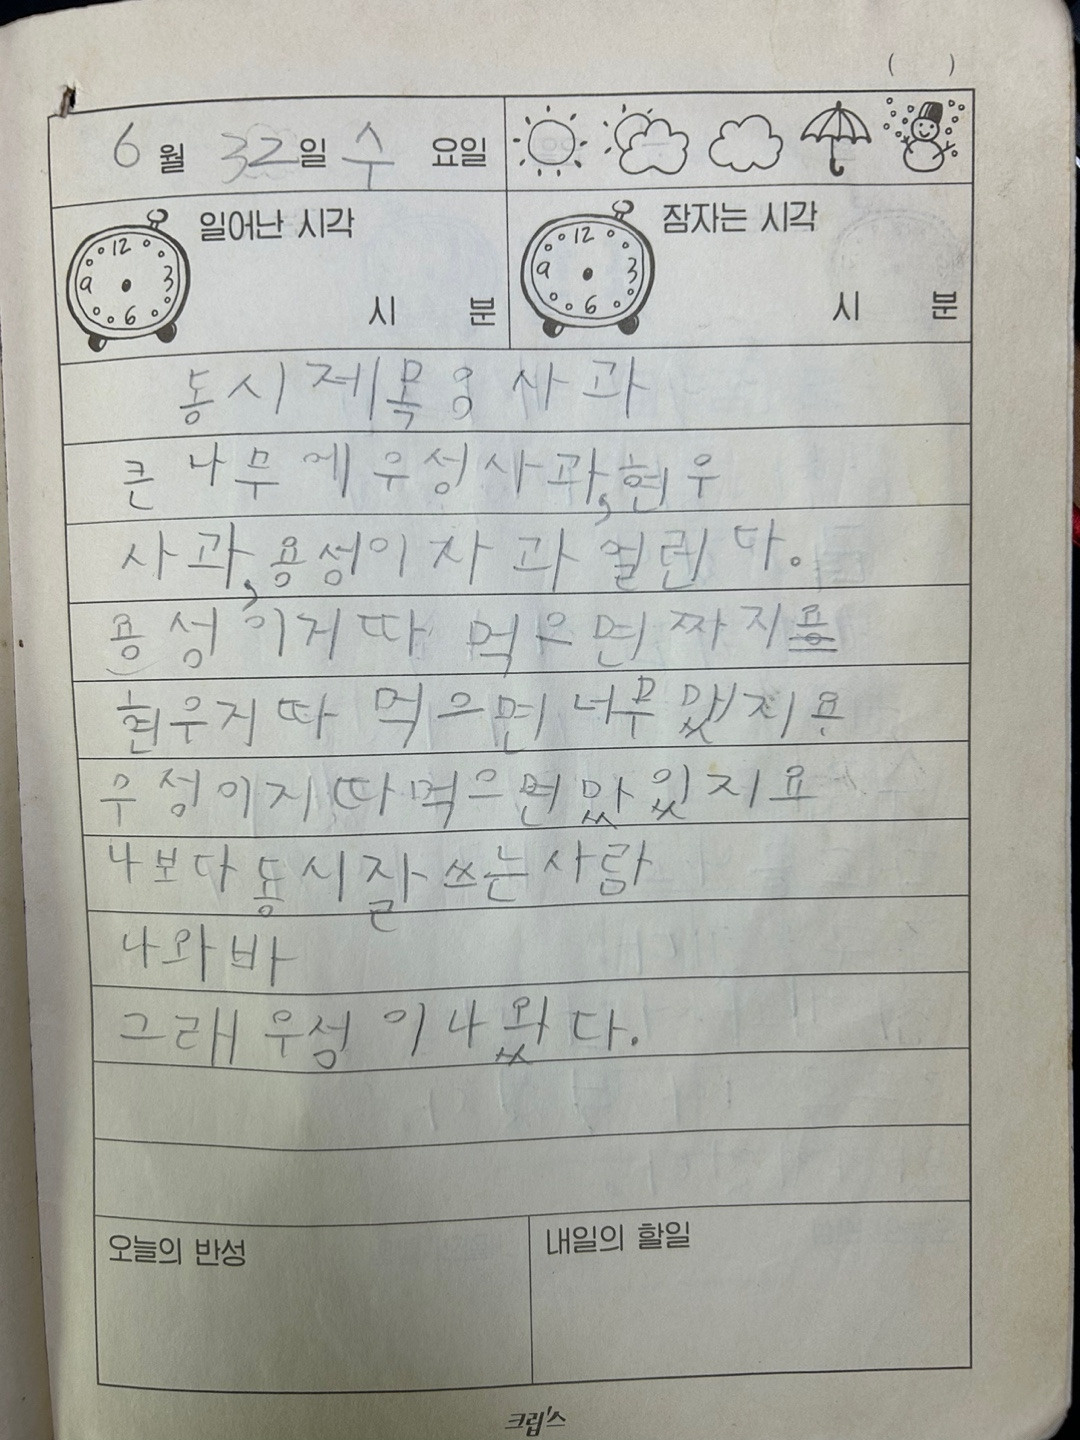 ( )
6 월 32 일 수 요일
일어난 시각
12 3 6 9
시 분
잠자는 시각
12 3 6 9
시 분
동시 제목옹 사과
큰 나무에 우성사과,현우
사과,용성이 사과 열린다.
용성이거 따 먹으면 짜지용
현우거 따 먹으면 너무 맜지요
우성이거 따 먹으면 맜있지요
나보다 동시 잘 쓰는 사람
나와바
그래 우성이 나왔다.
오늘의 반성
내일의 할일
크립스